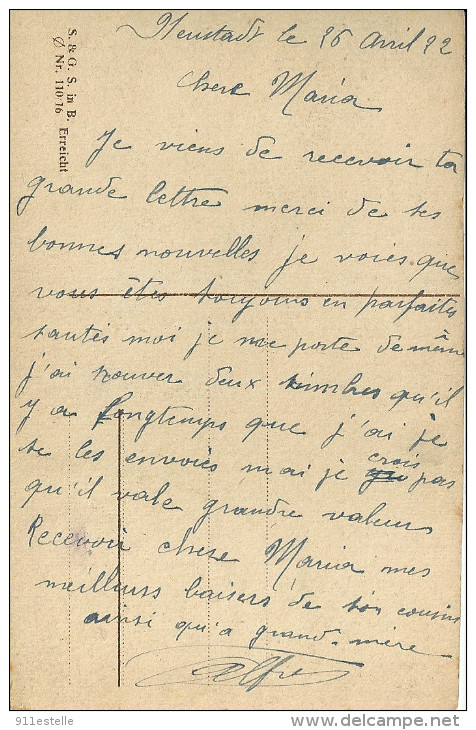 S. & G. S. in B.
Nr. 110/16 Erreicht
Neustadt le 26 Avril 22
Chere Maria
Je viens de recevoir ta
grande lettre merci de tes
bonnes nouvelles je voies que
vous êtes toujours en parfaites
santés moi je me porte de même
j'ai trouver deux timbres qu'il
y a longtemps que j'ai je
te les envoies mai je crois pas
qu'il vale grandre valeurs
Recevoir chere Maria mes
meilleurs baisers de ton cousin
ainsi qu'a grand-mère
Alfre
911estelle
www.delcampe.net